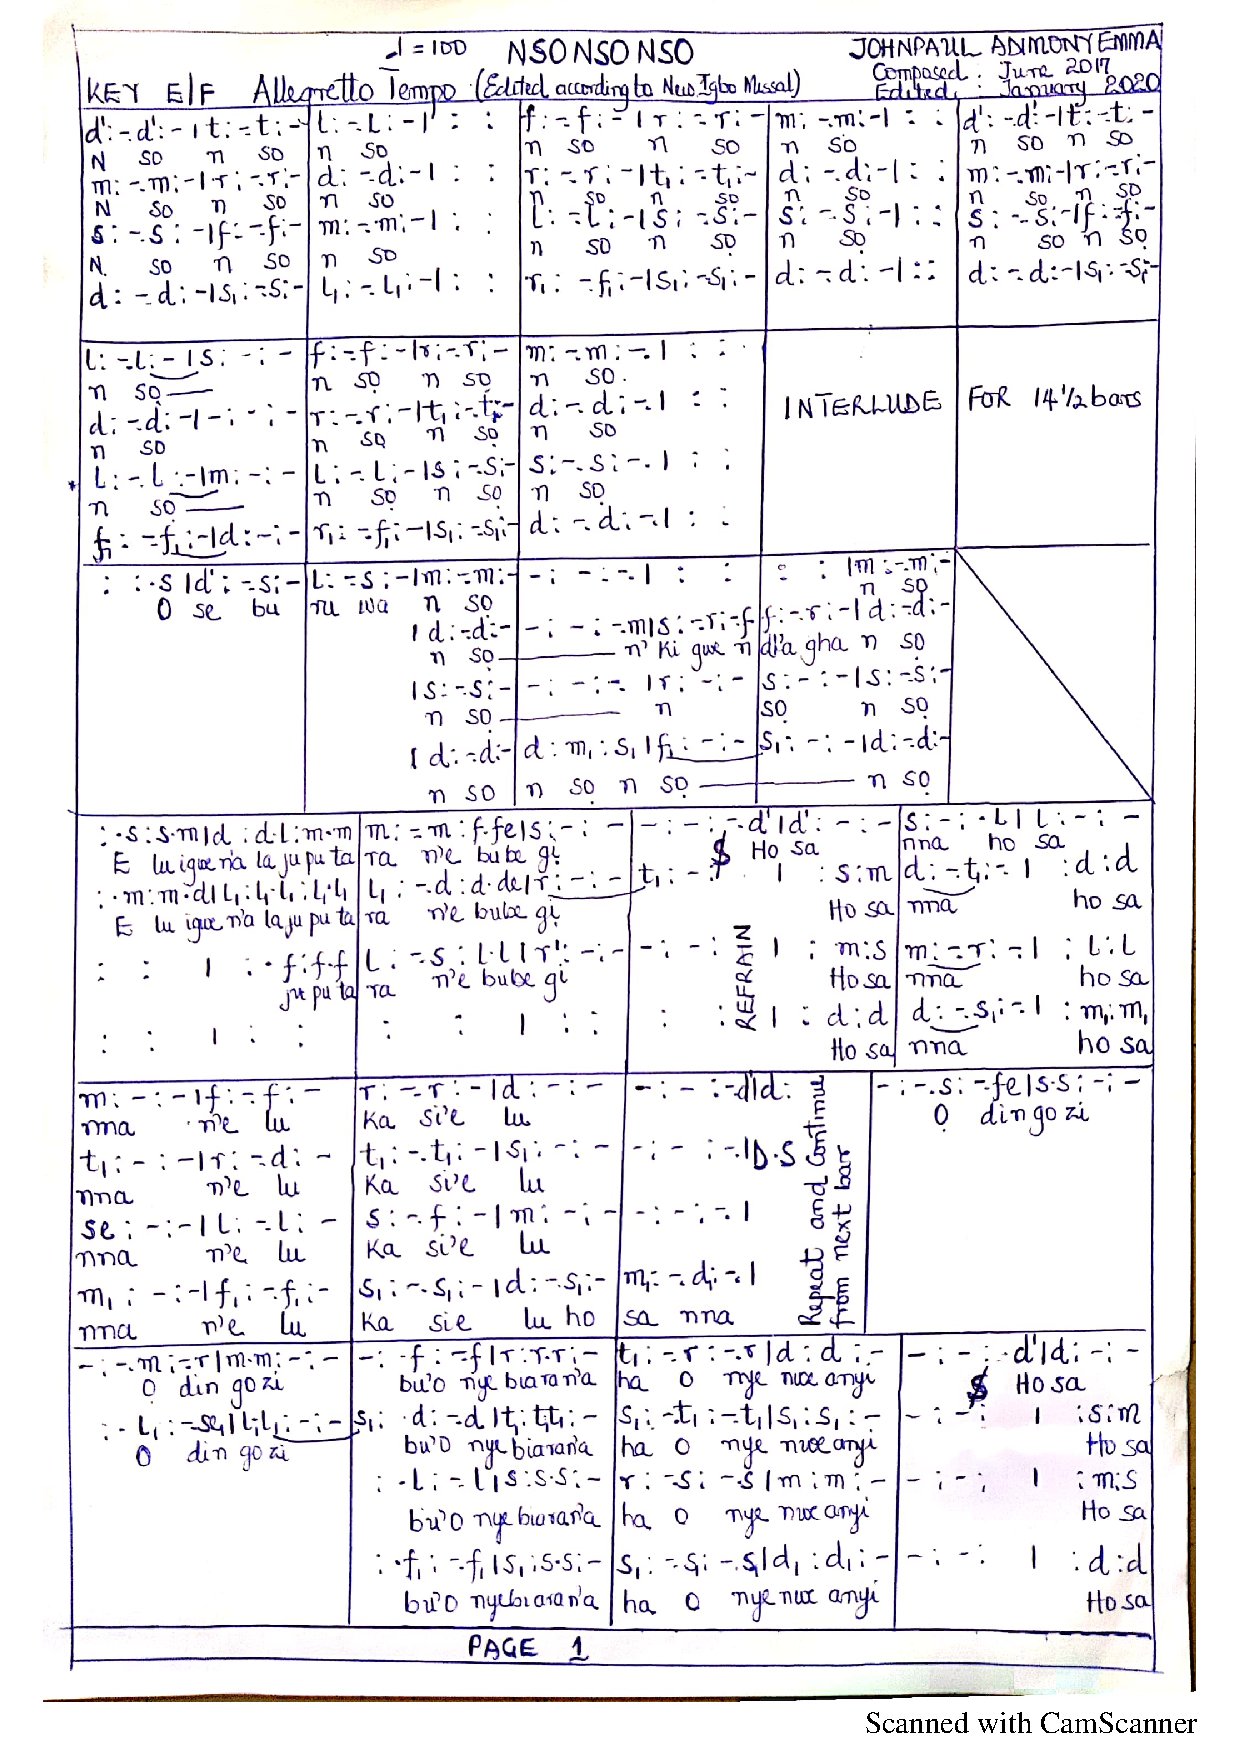 ♩=100 NSO NSO NSO JOHNPAUL ADIMONYEMMA
Composed : June 2017
KEY E/F Allegretto Tempo (Edited according to New Igbo Missal) Edited : January 2020
d':-.d':-|t:-.t:- | l:-.l:-| : : | f:-.f:-|r:-.r:- | m:-.m:-| : : | d':-.d':-|t:-.t:-
N so n so | n so | n so n so | n so | n so n so
m:-.m:-|r:-.r:- | d:-.d:-| : : | r:-.r:-|t₁:-.t₁:- | d:-.d:-| : : | m:-.m:-|r:-.r:-
N so n so | n so | n so n so | n so | n so n so
s:-.s:-|f:-.f:- | m:-.m:-| : : | l:-.l:-|s:-.s:- | s:-.s:-| : : | s:-.s:-|f:-.f:-
N. so n so | n so | n so n sọ | n sọ | n so n sọ
d:-.d:-|s₁:-.s₁:- | l₁:-.l₁:-| : : | r₁:-.f₁:-|s₁:-.s₁:- | d:-.d:-| : : | d:-.d:-|s₁:-.s₁:-
l:-.l:-|s:-:- | f:-.f:-|r:-.r:- | m:-.m:-.| : :
n sọ | n sọ n sọ | n so.
d:-.d:-|-:-:- | r:-.r:-|t₁:-.t₁:- | d:-.d:-.| : : | INTERLUDE | FOR 14½ bars
n so | n sọ n sọ | n so
l:-.l:-|m:-:- | l:-.l:-|s:-.s:- | s:-.s:-.| : :
n sọ | n sọ n sọ | n sọ
f₁:-.f₁:-|d:-:- | r₁:-.f₁:-|s₁:-.s₁:- | d:-.d:-.| : :
: :.s|d':-.s:- | l:-.s:-|m:-.m:- | -:-:-.| : : | : : |m:-.m:-
O se bu | ru wa n sọ | n sọ
|d:-.d:- | -:-:-.m|s:-.r:-.f | f:-.r:-|d:-.d:-
n sọ | n' Ki gwe n | dl'a gha n sọ
|s:-.s:- | -:-:-.|r:-:- | s:-:-|s:-.s:-
n sọ | n | sọ n sọ
|d:-.d:- | d:m₁:s₁|f₁:-:- | s₁:-:-|d:-.d:-
n so | n sọ n sọ | n sọ
:.s:s.m|d:d.l:m.m | m:-.m:f.fe|s:-:- | -:-:-.d'|d':-:- | s:-:.l|l:-:-
E lu igwe n'a la ju pu ta | ra n'e bu be gi | Ho sa | nna ho sa
:.m:m.d|l₁:l₁.l₁:l₁.l₁ | l₁:-.d:d.de|r:-:- | t₁:-:- | :s:m | d:-.t₁:-| :d:d
E lu igwe n'a la ju pu ta | ra n'e bube gi | Ho sa | nna ho sa
: : | :.f:f.f | l:-.s:l.l|r':-:- | -:-: | :m:s | m:-.r:-| :l:l
ju pu ta | ra n'e bube gi | REFRAIN | Ho sa | nna ho sa
: : | : : | : : | : : | : : | :d:d | d:-.s₁:-| :m₁:m₁
Ho sa | nna ho sa
m:-:-|f:-.f:- | r:-.r:-|d:-:- | -:-:-.d|d: | -:-.s:-.fe|s.s:-:-
nna n'e lu | Ka si'e lu | Ọ din go zi
t₁:-:-|r:-.d:- | t₁:-.t₁:-|s₁:-:- | -:-:-.|D.S
nna n'e lu | Ka si'e lu
se:-:-|l:-.l:- | s:-.f:-|m:-:- | -:-:-.|
nna n'e lu | Ka si'e lu
m₁:-:-|f₁:-.f₁:- | s₁:-.s₁:-|d:-.s₁:- | m₁:-.d₁:-.|
nna n'e lu | Ka sie lu ho | sa nna
Repeat and Continue
from next bar
-:-.m:-.r|m.m:-:- | -:.f:-.f|r:r.r:- | t₁:-.r:-.r|d:d:- | -:-:.d'|d:-:-
Ọ din go zi | bu'O nye biaran'a | ha O nye nwe anyi | Ho sa
:.l₁:-.se₁|l₁.l₁:-:- | s₁:.d:-.d|t₁:t₁.t₁:- | s₁:-.t₁:-.t₁|s₁:s₁:- | -:-: | :s:m
O din go zi | bu'O nye biaran'a | ha O nye nwe anyi | Ho sa
:.l:-.l|s:s.s:- | r:-.s:-.s|m:m:- | -:-: | :m:s
bu'O nye biaran'a | ha O nye nwe anyi | Ho sa
:.f₁:-.f₁|s₁:s.s:- | s₁:-.s₁:-.s₁|d₁:d₁:- | -:-: | :d:d
bu'O nyebiaran'a | ha O nye nwe anyi | Ho sa
PAGE 1
Scanned with CamScanner